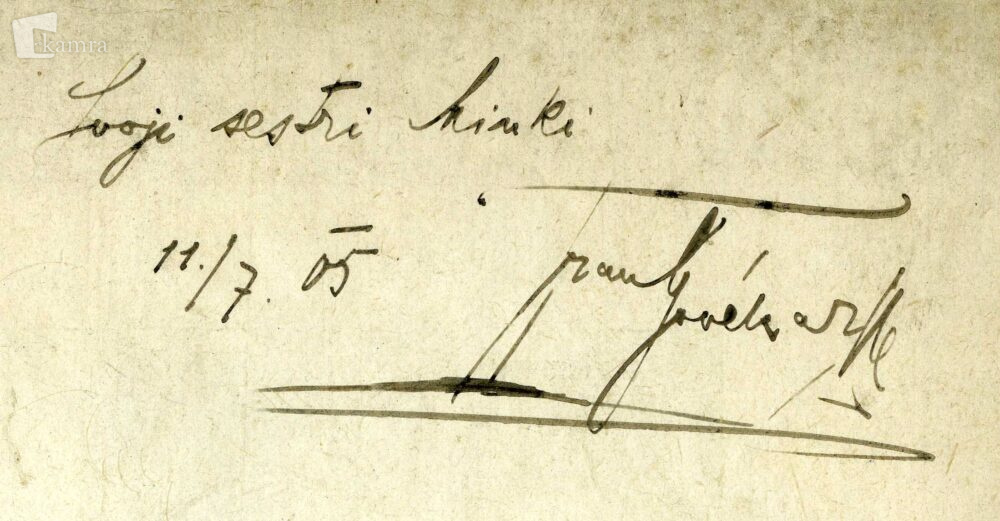 kamra
Svoji sestri Minki
11./7. 05 Fran Govékar